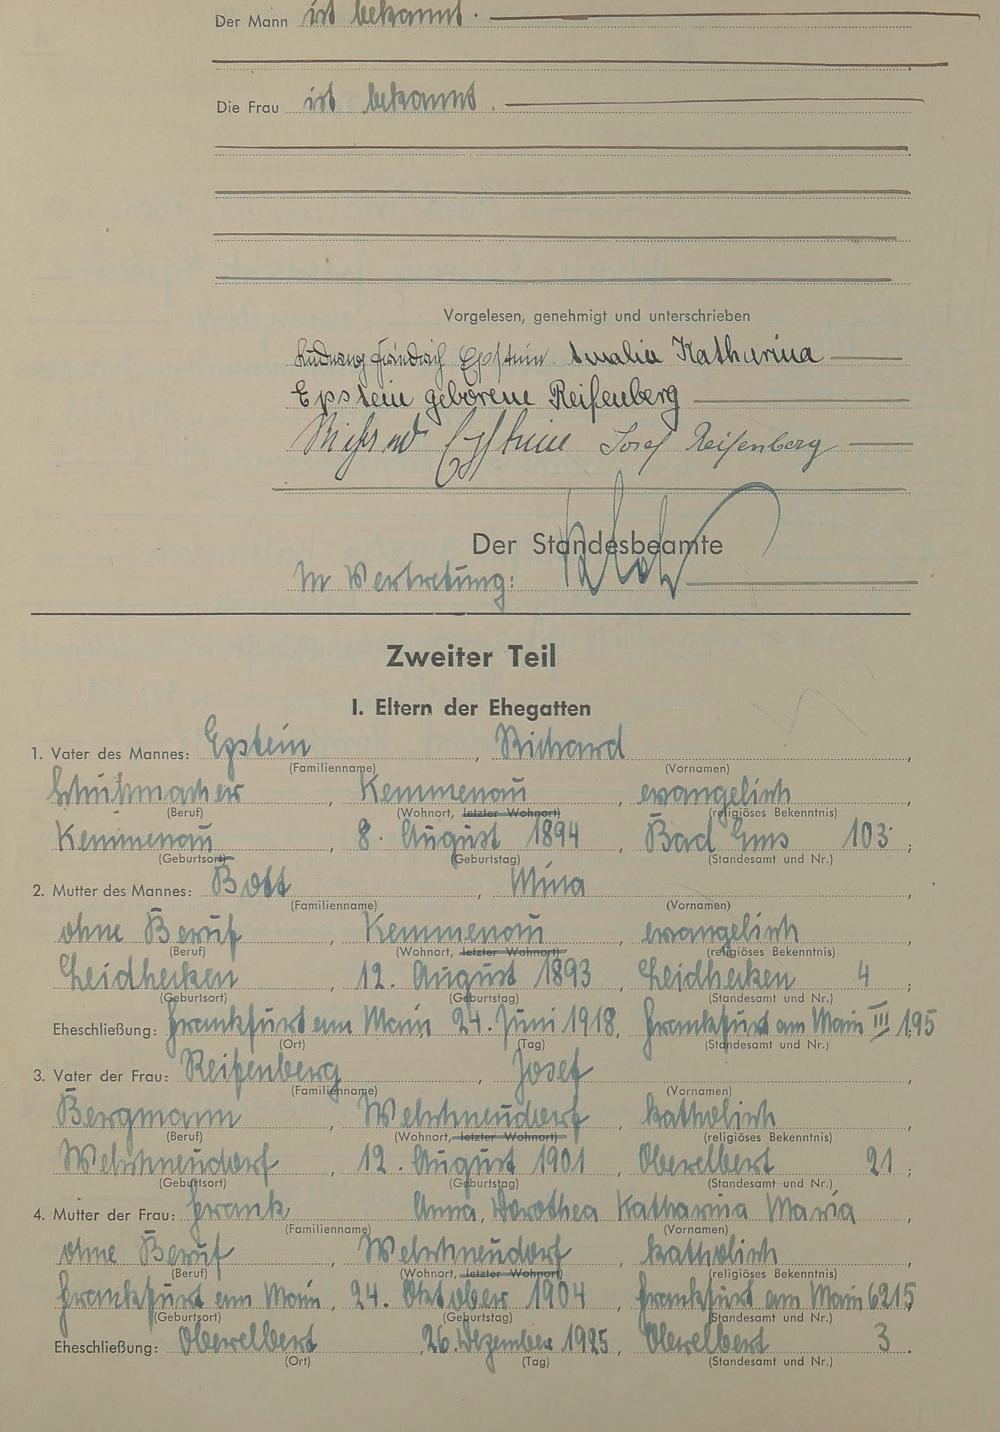 Der Mann ist bekannt.
Die Frau ist bekannt.
Vorgelesen, genehmigt und unterschrieben
Ludwig Friedrich Epstein Amalia Katharina
Epstein geborene Reifenberg
Richard Epstein Josef Reifenberg
Der Standesbeamte
In Vertretung:
Zweiter Teil
I. Eltern der Ehegatten
1. Vater des Mannes: Epstein, Richard,
(Familienname) (Vornamen)
Schuhmacher, Kemmenau, evangelisch,
(Beruf) (Wohnort, letzter Wohnort) (religiöses Bekenntnis)
Kemmenau, 8. August 1894, Bad Ems 103;
(Geburtsort) (Geburtstag) (Standesamt und Nr.)
2. Mutter des Mannes: Bott, Mina,
(Familienname) (Vornamen)
ohne Beruf, Kemmenau, evangelisch,
(Beruf) (Wohnort, letzter Wohnort) (religiöses Bekenntnis)
Leidhecken, 12. August 1893, Leidhecken 4;
(Geburtsort) (Geburtstag) (Standesamt und Nr.)
Eheschließung: Frankfurt am Main, 24. Juni 1918, Frankfurt am Main III 195
(Ort) (Tag) (Standesamt und Nr.)
3. Vater der Frau: Reifenberg, Josef,
(Familienname) (Vornamen)
Bergmann, Weinähr katholisch,
(Beruf) (Wohnort, letzter Wohnort) (religiöses Bekenntnis)
12. August 1901, Oberelbert 21;
(Geburtsort) (Geburtstag) (Standesamt und Nr.)
4. Mutter der Frau: Frank, Anna, Dorothea Katharina Maria,
(Familienname) (Vornamen)
ohne Beruf, katholisch,
(Beruf) (Wohnort, letzter Wohnort) (religiöses Bekenntnis)
Frankfurt am Main, 24. Oktober 1904, Frankfurt am Main 6215
(Geburtsort) (Geburtstag) (Standesamt und Nr.)
Eheschließung: Oberelbert, 26. Dezember 1925, Oberelbert 3.
(Ort) (Tag) (Standesamt und Nr.)